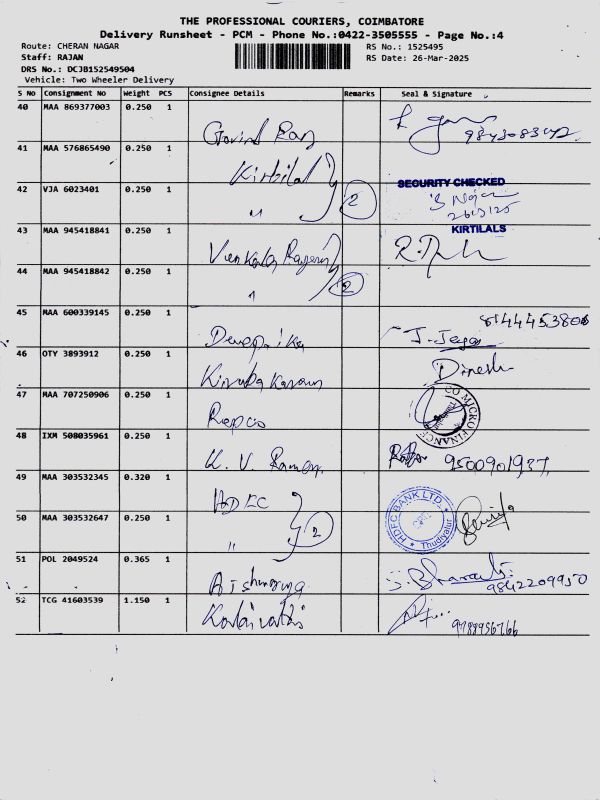 THE PROFESSIONAL COURIERS, COIMBATORE
Delivery Runsheet - PCM - Phone No.:0422-3505555 - Page No.:4
Route: CHERAN NAGAR
RS No.: 1525495
Staff: RAJAN
RS Date: 26-Mar-2025
DRS No.: DCJB152549504
Vehicle: Two Wheeler Delivery
S No Consignment No Weight PCS Consignee Details Remarks Seal & Signature
40 MAA 869377003 0.250 1
Govind Raj 9843083542
41 MAA 576865490 0.250 1
Kirtilal
42 VJA 6023401 0.250 1 SECURITY CHECKED
" 2 26/3/25
43 MAA 945418841 0.250 1 KIRTILALS
44 MAA 945418842 0.250 1
" 2
45 MAA 600339145 0.250 1 8144453808
Deepika
46 OTY 3893912 0.250 1 Dinesh
47 MAA 707250906 0.250 1 MICRO FINANCE
Repco
48 IXM 508035961 0.250 1
K. V. 9500901937
49 MAA 303532345 0.320 1
HDFC HDFC BANK LTD.
50 MAA 303532647 0.250 1
" 2 Thudiyalur
51 POL 2049524 0.365 1
9842209950
52 TCG 41603539 1.150 1
Kalaivathi 9788956766